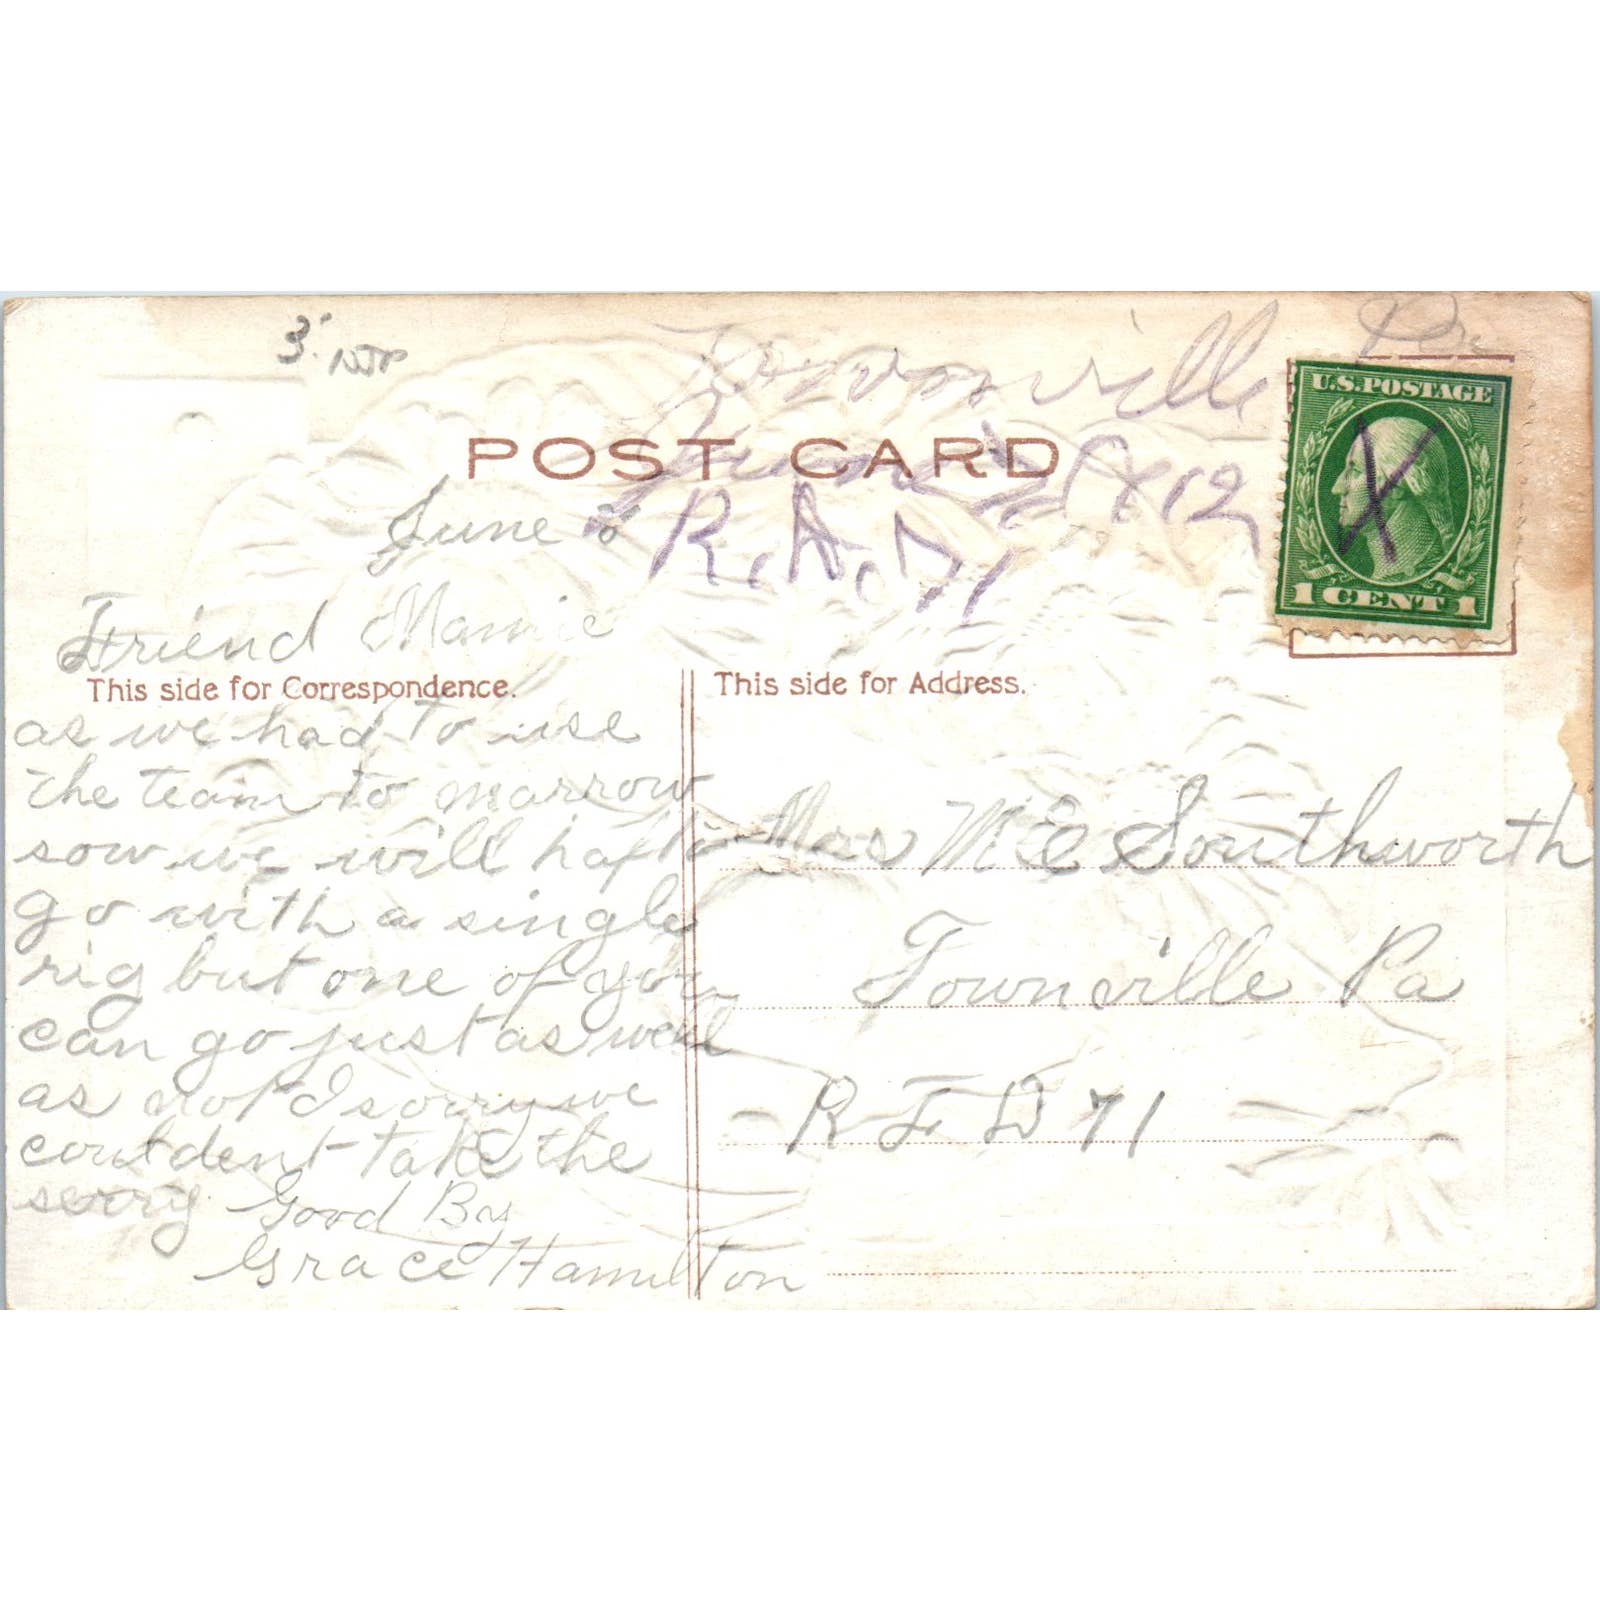 3.
Townville Pa
U.S. POSTAGE
POST CARD
June 8 1912
June 8
R.F.D. 71
1 CENT 1
Friend Mamie
This side for Correspondence.
as we had to use
the team to marrow
sow we will hafto
go with a single
rig but one of you
can go just as well
as not I sorry we
couldent take the
serry Good By
Grace Hamilton
This side for Address.
Mrs M E Southworth
Townville Pa
R F D 71